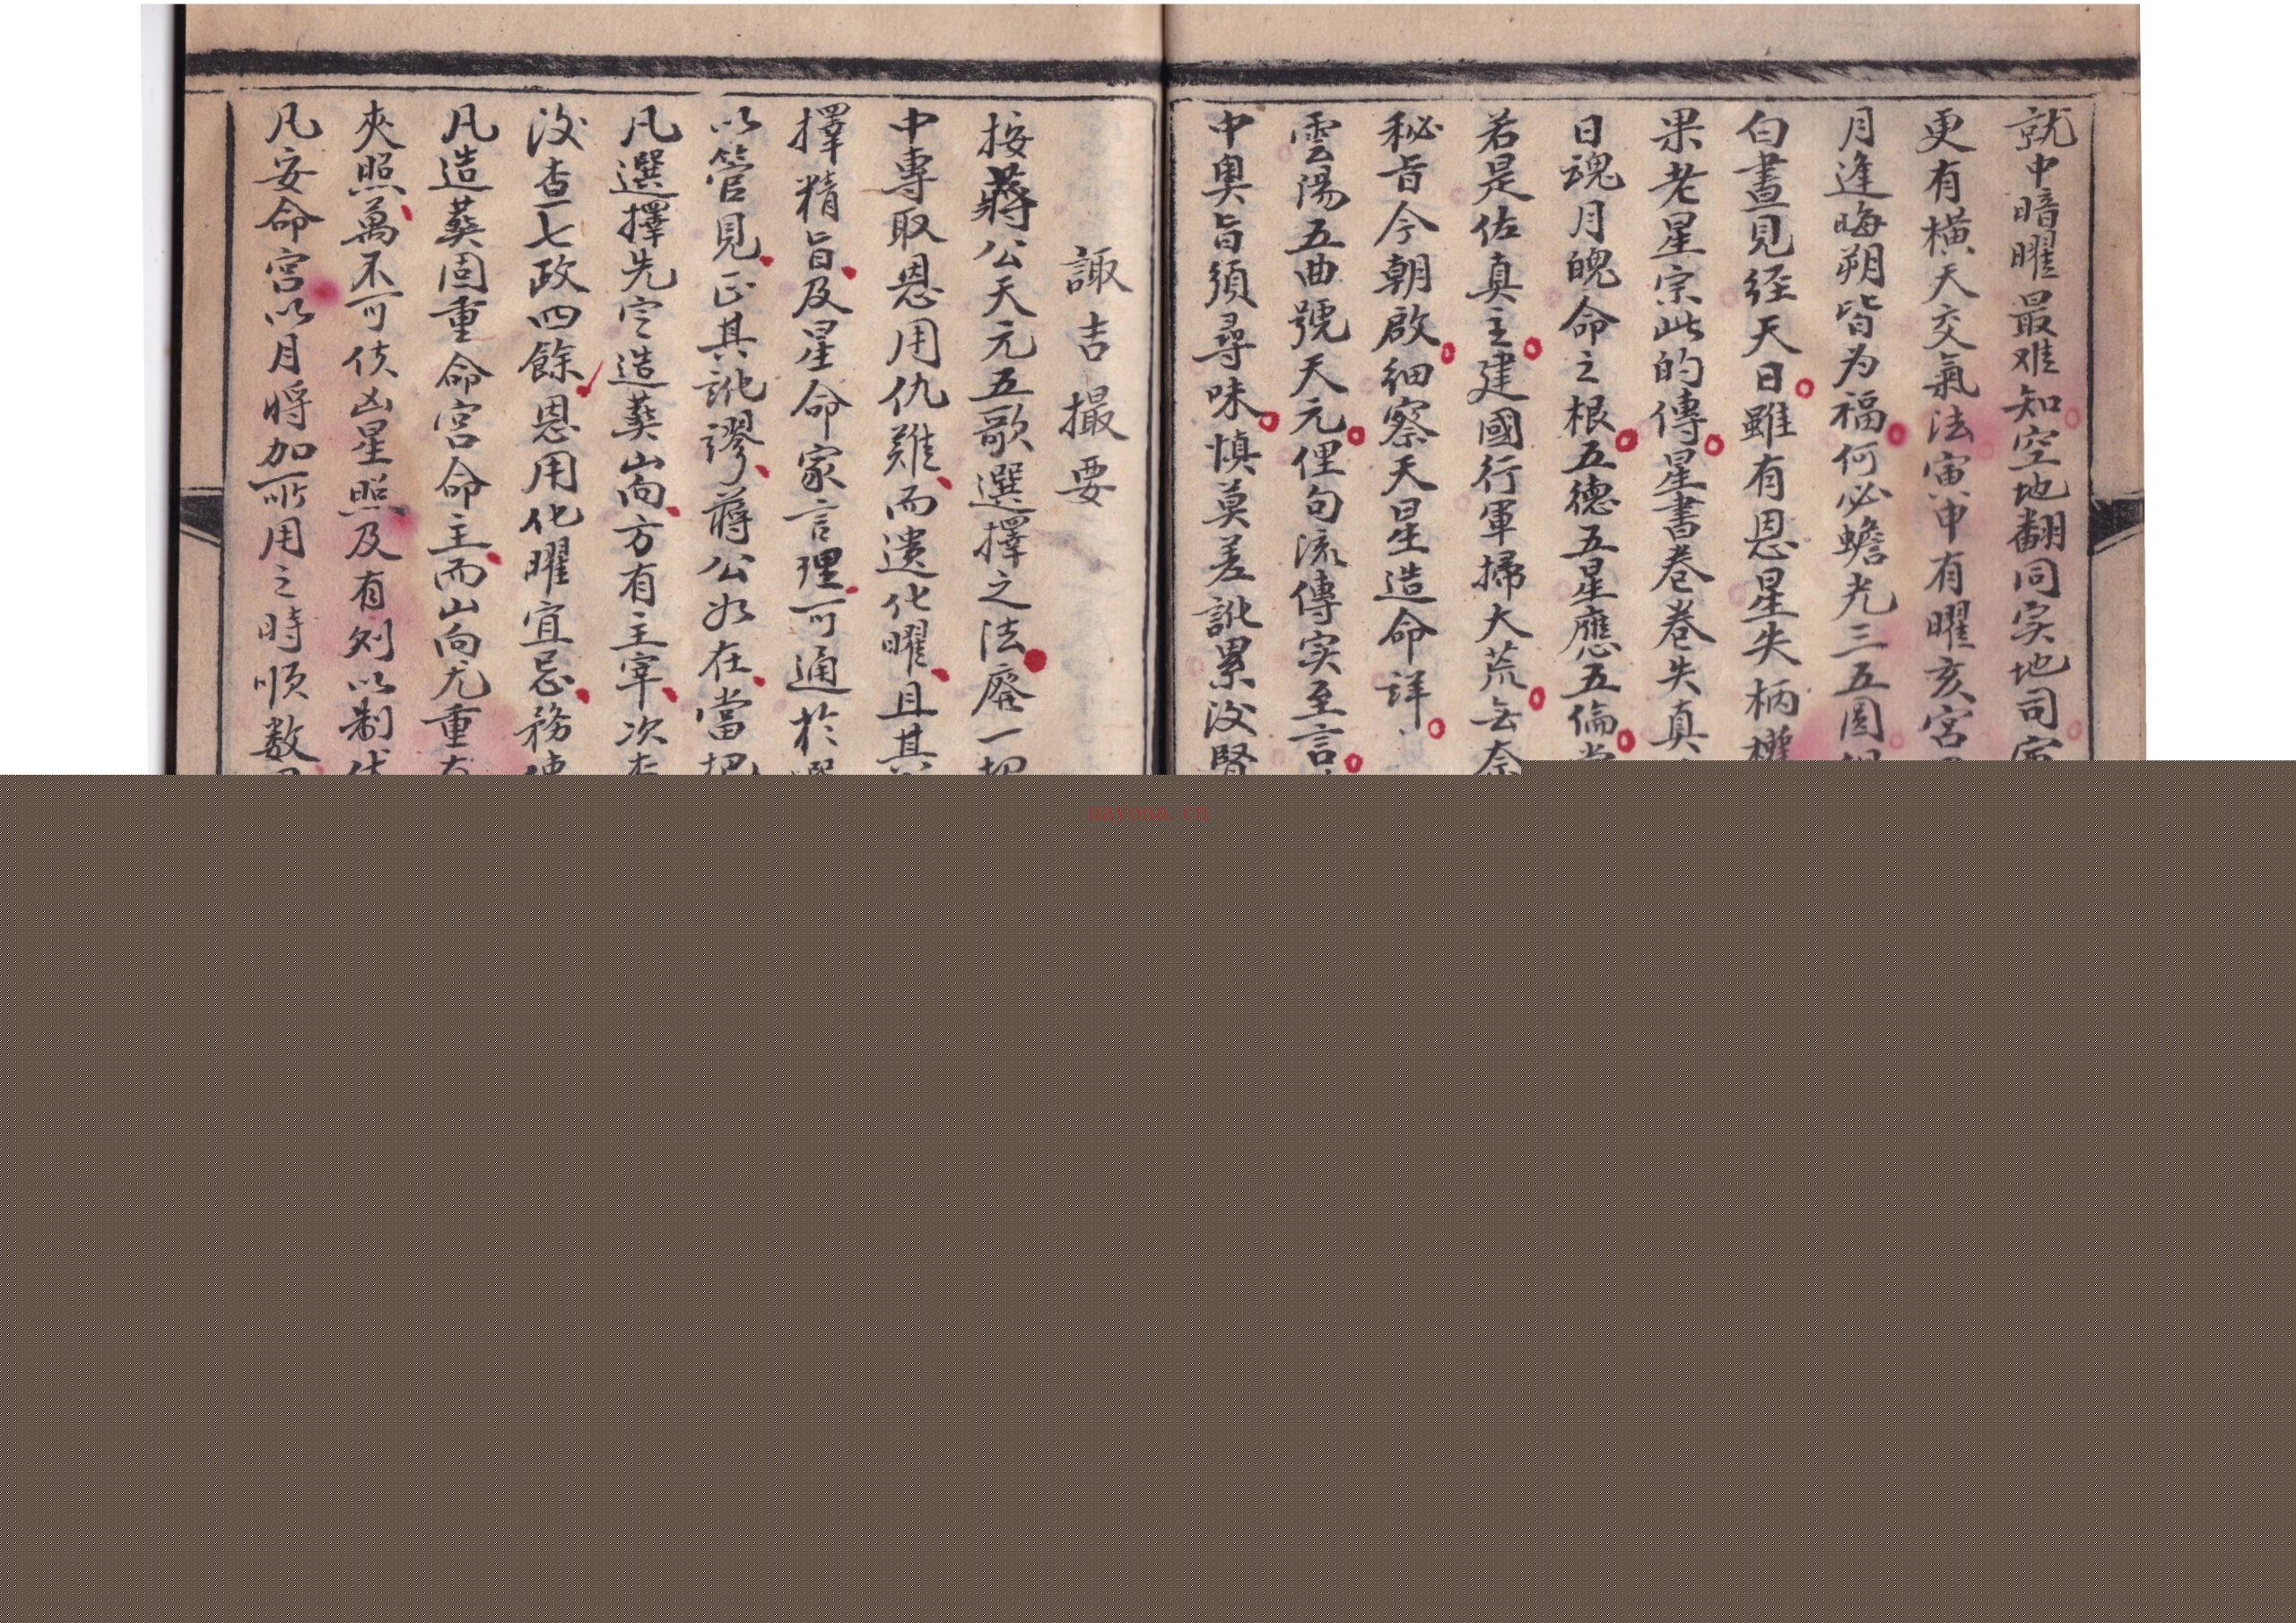 就中暗曜最难知空地翻同实地司
更有横天交氣法寅申有曜亥宮
月逢晦朔皆为福何必蟾光三五圆
白晝見経天日雖有恩星失柄權
果老星宗此的傳星書卷卷失真
日魂月魄命之根五德五星應五倫
若是佐真主建國行軍掃大荒
秘旨今朝啟細察天星造命詳
雲陽五曲號天元俚句流傳实至言
中奥旨須尋味慎莫差訛累後賢
諏吉撮要
按蔣公天元五歌選擇之法
中專取恩用仇難而遗化曜且其
擇精旨及星命家言理可通於
以管見正其訛謬蔣公如在當
凡選擇先定造葬山向方有主宰次
後查七政四餘恩用化曜宜忌務
凡造葬固重命宮命主而山向尤重
夾照萬不可使凶星照及有则以制
凡安命宮以月将加所用之時順数
nayona.cn